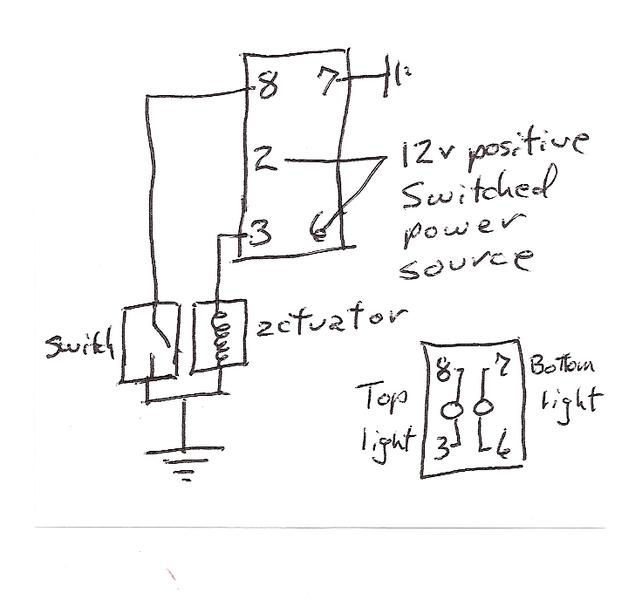 8 7
2
3 6
12v positive
Switched
power
source
Switch
actuator
8 7
3 6
Top
light
Bottom
light